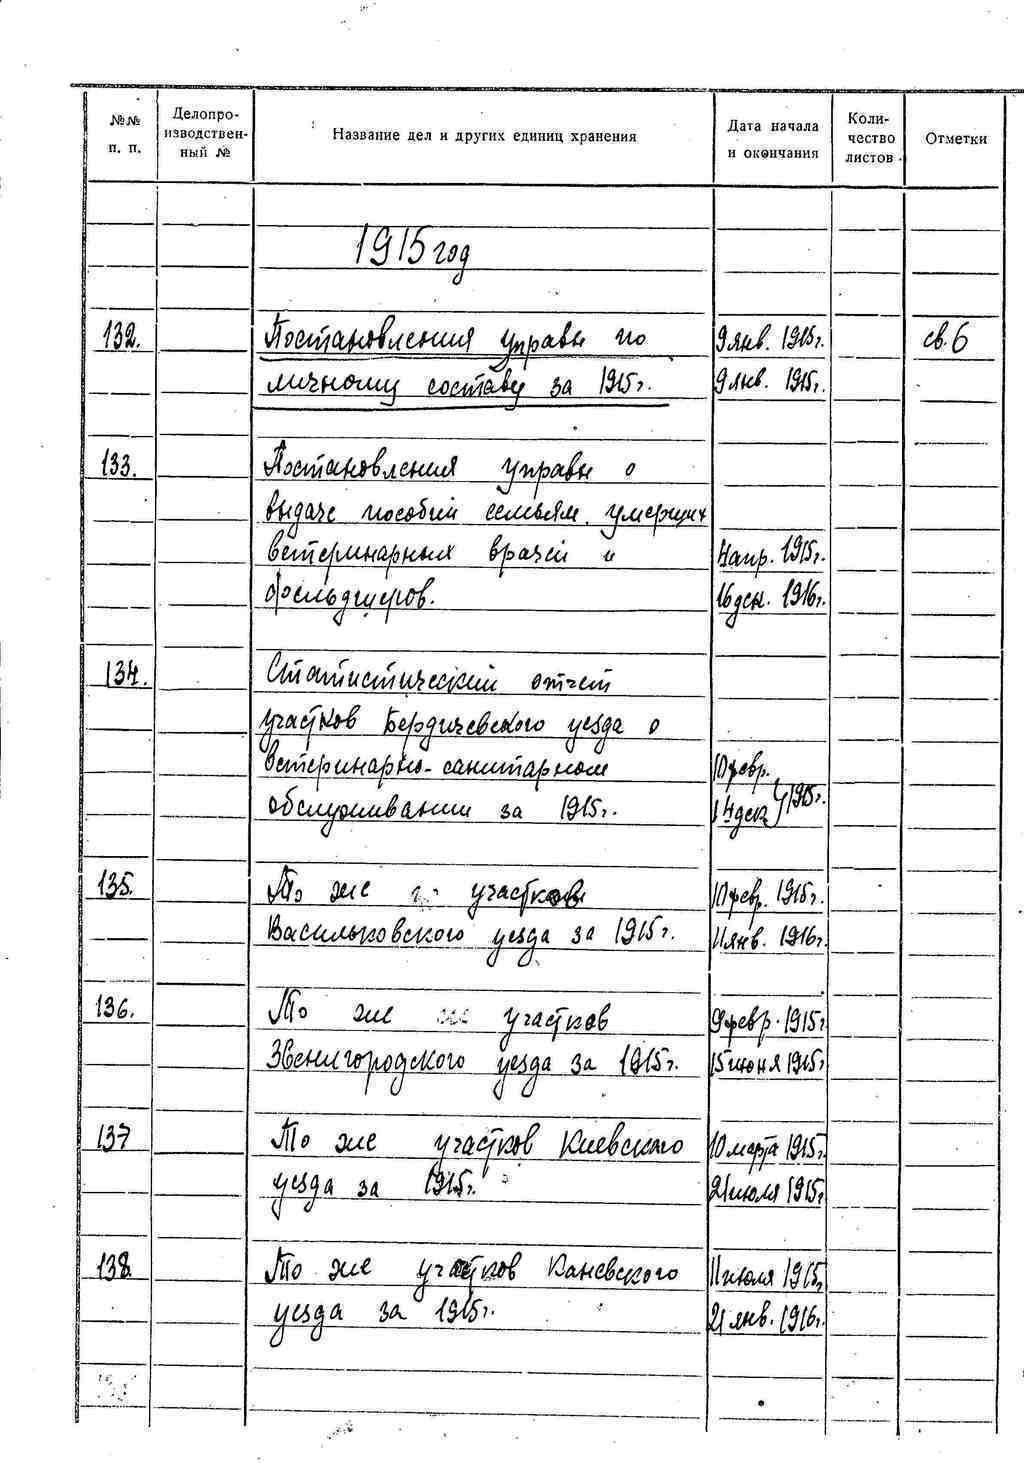 №№ п. п.
Делопро-
изводствен-
ный №
Название дел и других единиц хранения
Дата начала
и окончания
Коли-
чество
листов
Отметки
1915 год
132. Постановления управы по 9 янв. 1915г. св. 6
личному составу за 1915г. 9 янв. 1915г.
133. Постановления управы о
выдаче пособий семьям умерших
ветеринарных врачей и 4 апр. 1915г.
фельдшеров. 16 дек. 1916г.
134. Статистический отчет
участков Бердичевского уезда о
ветеринарно-санитарном 10 февр.
обслуживании за 1915г. 14 дек. 1915г.
135. То же участков 10 февр. 1915г.
Васильковского уезда за 1915г. 11 янв. 1916г.
136. То же участков 9 февр. 1915г.
Звенигородского уезда за 1915г. 15 июня 1915г.
137 То же участков Киевского 10 марта 1915г.
уезда за 1915г. 21 июля 1915г.
138. То же участков Каневского 11 июля 1915г.
уезда за 1915г. 21 янв. 1916г.